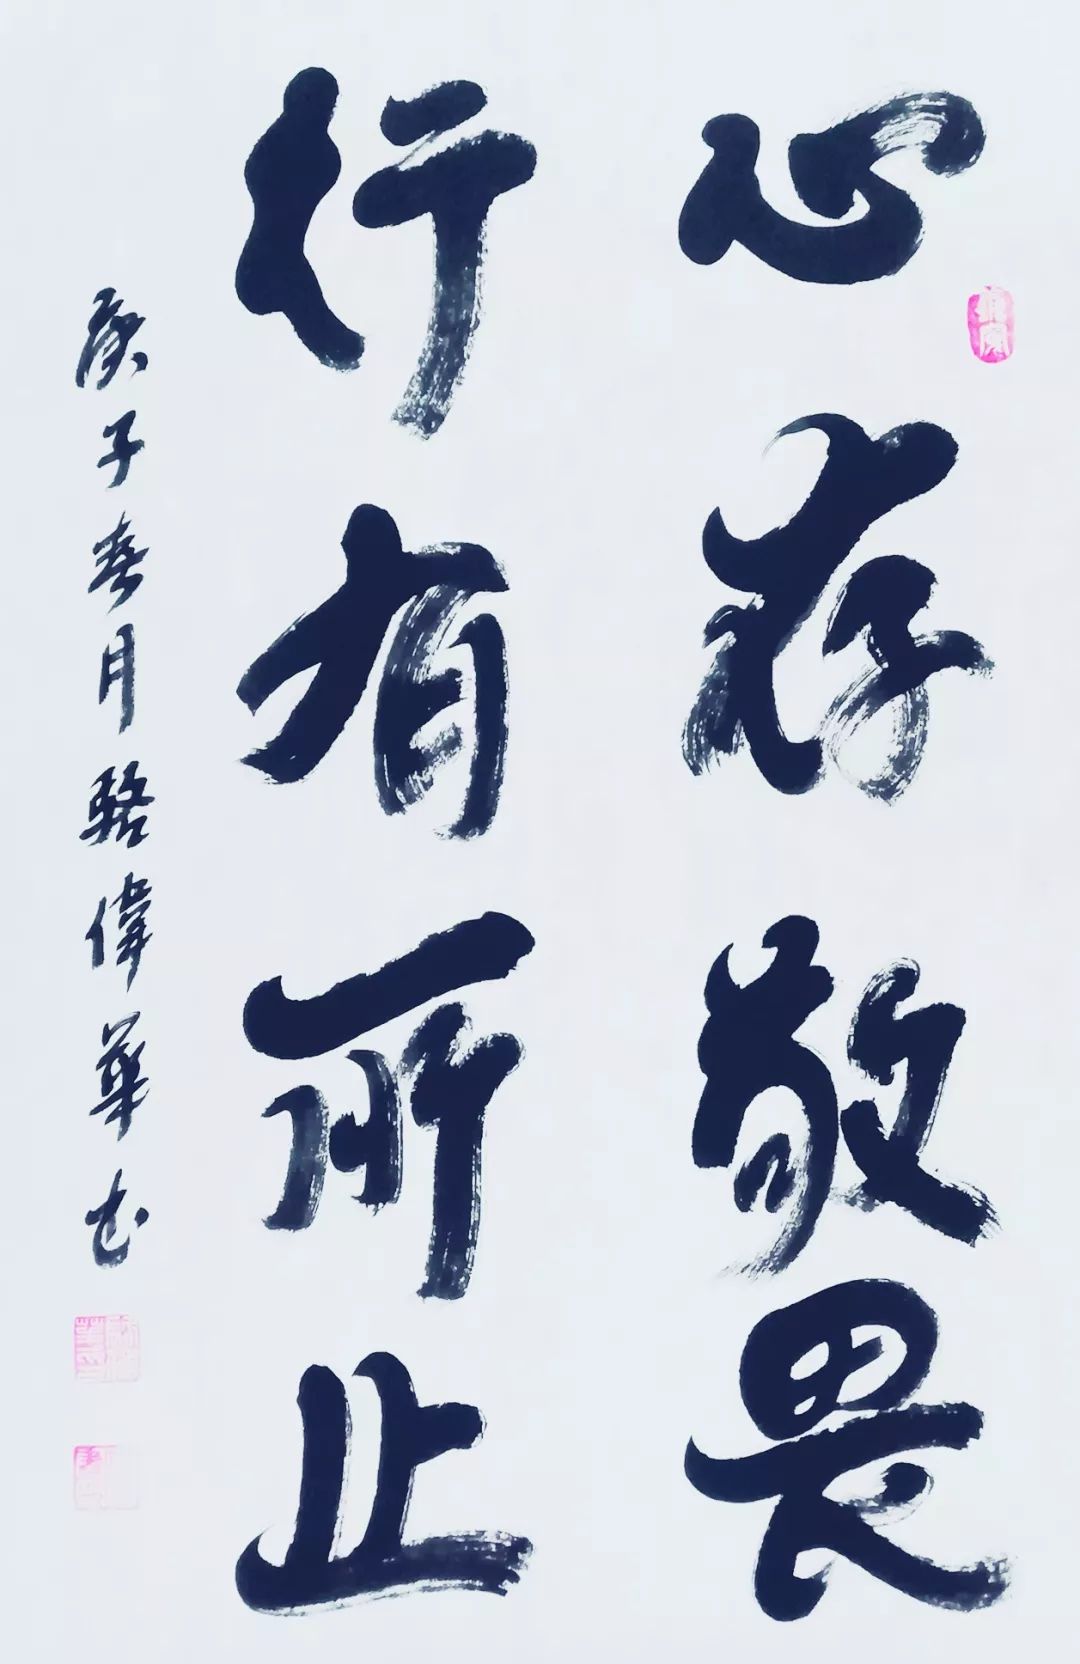 心存敬畏
行有所止
庚子春月駱偉華书